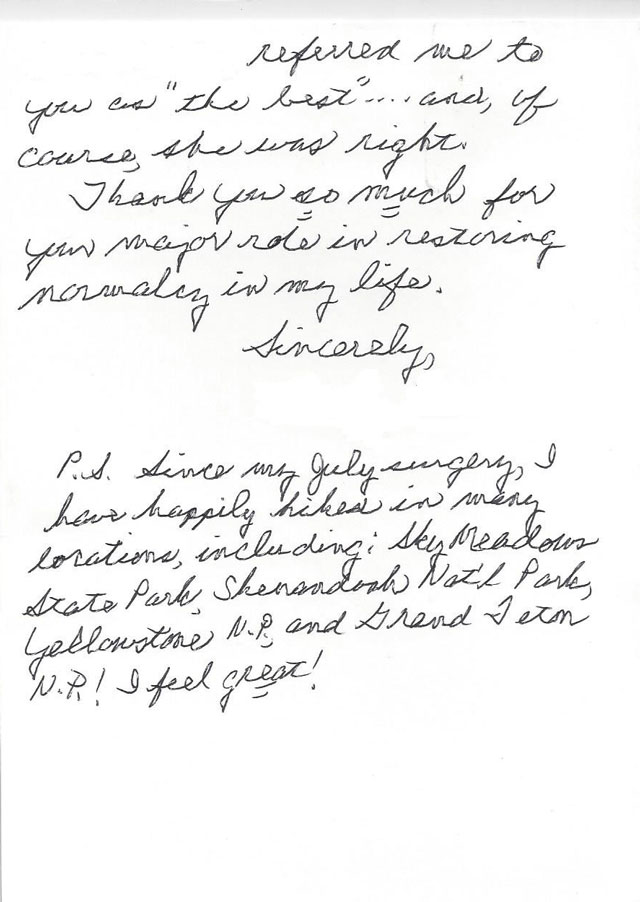 referred me to
you as "the best".... and, of
course, she was right.
Thank you so much for
your major role in restoring
normalcy in my life.
Sincerely,
P.S. Since my July surgery, I
have happily hiked in many
locations, including: Sky Meadows
State Park, Shenandoah Nat'l Park,
Yellowstone N.P, and Grand Teton
N.P.! I feel great!